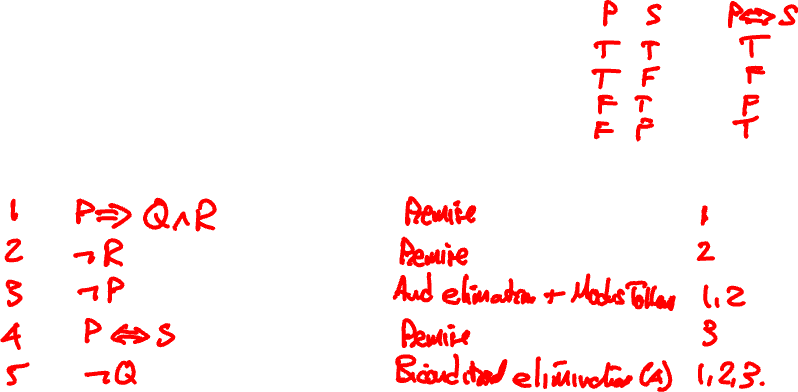 P S P⇔S
T T T
T F F
F T F
F F T
1 P⇒Q∧R Premise 1
2 ¬R Premise 2
3 ¬P And elimination + Modus Tollens 1,2
4 P⇔S Premise 3
5 ¬Q Biconditional elimination (a) 1,2,3.